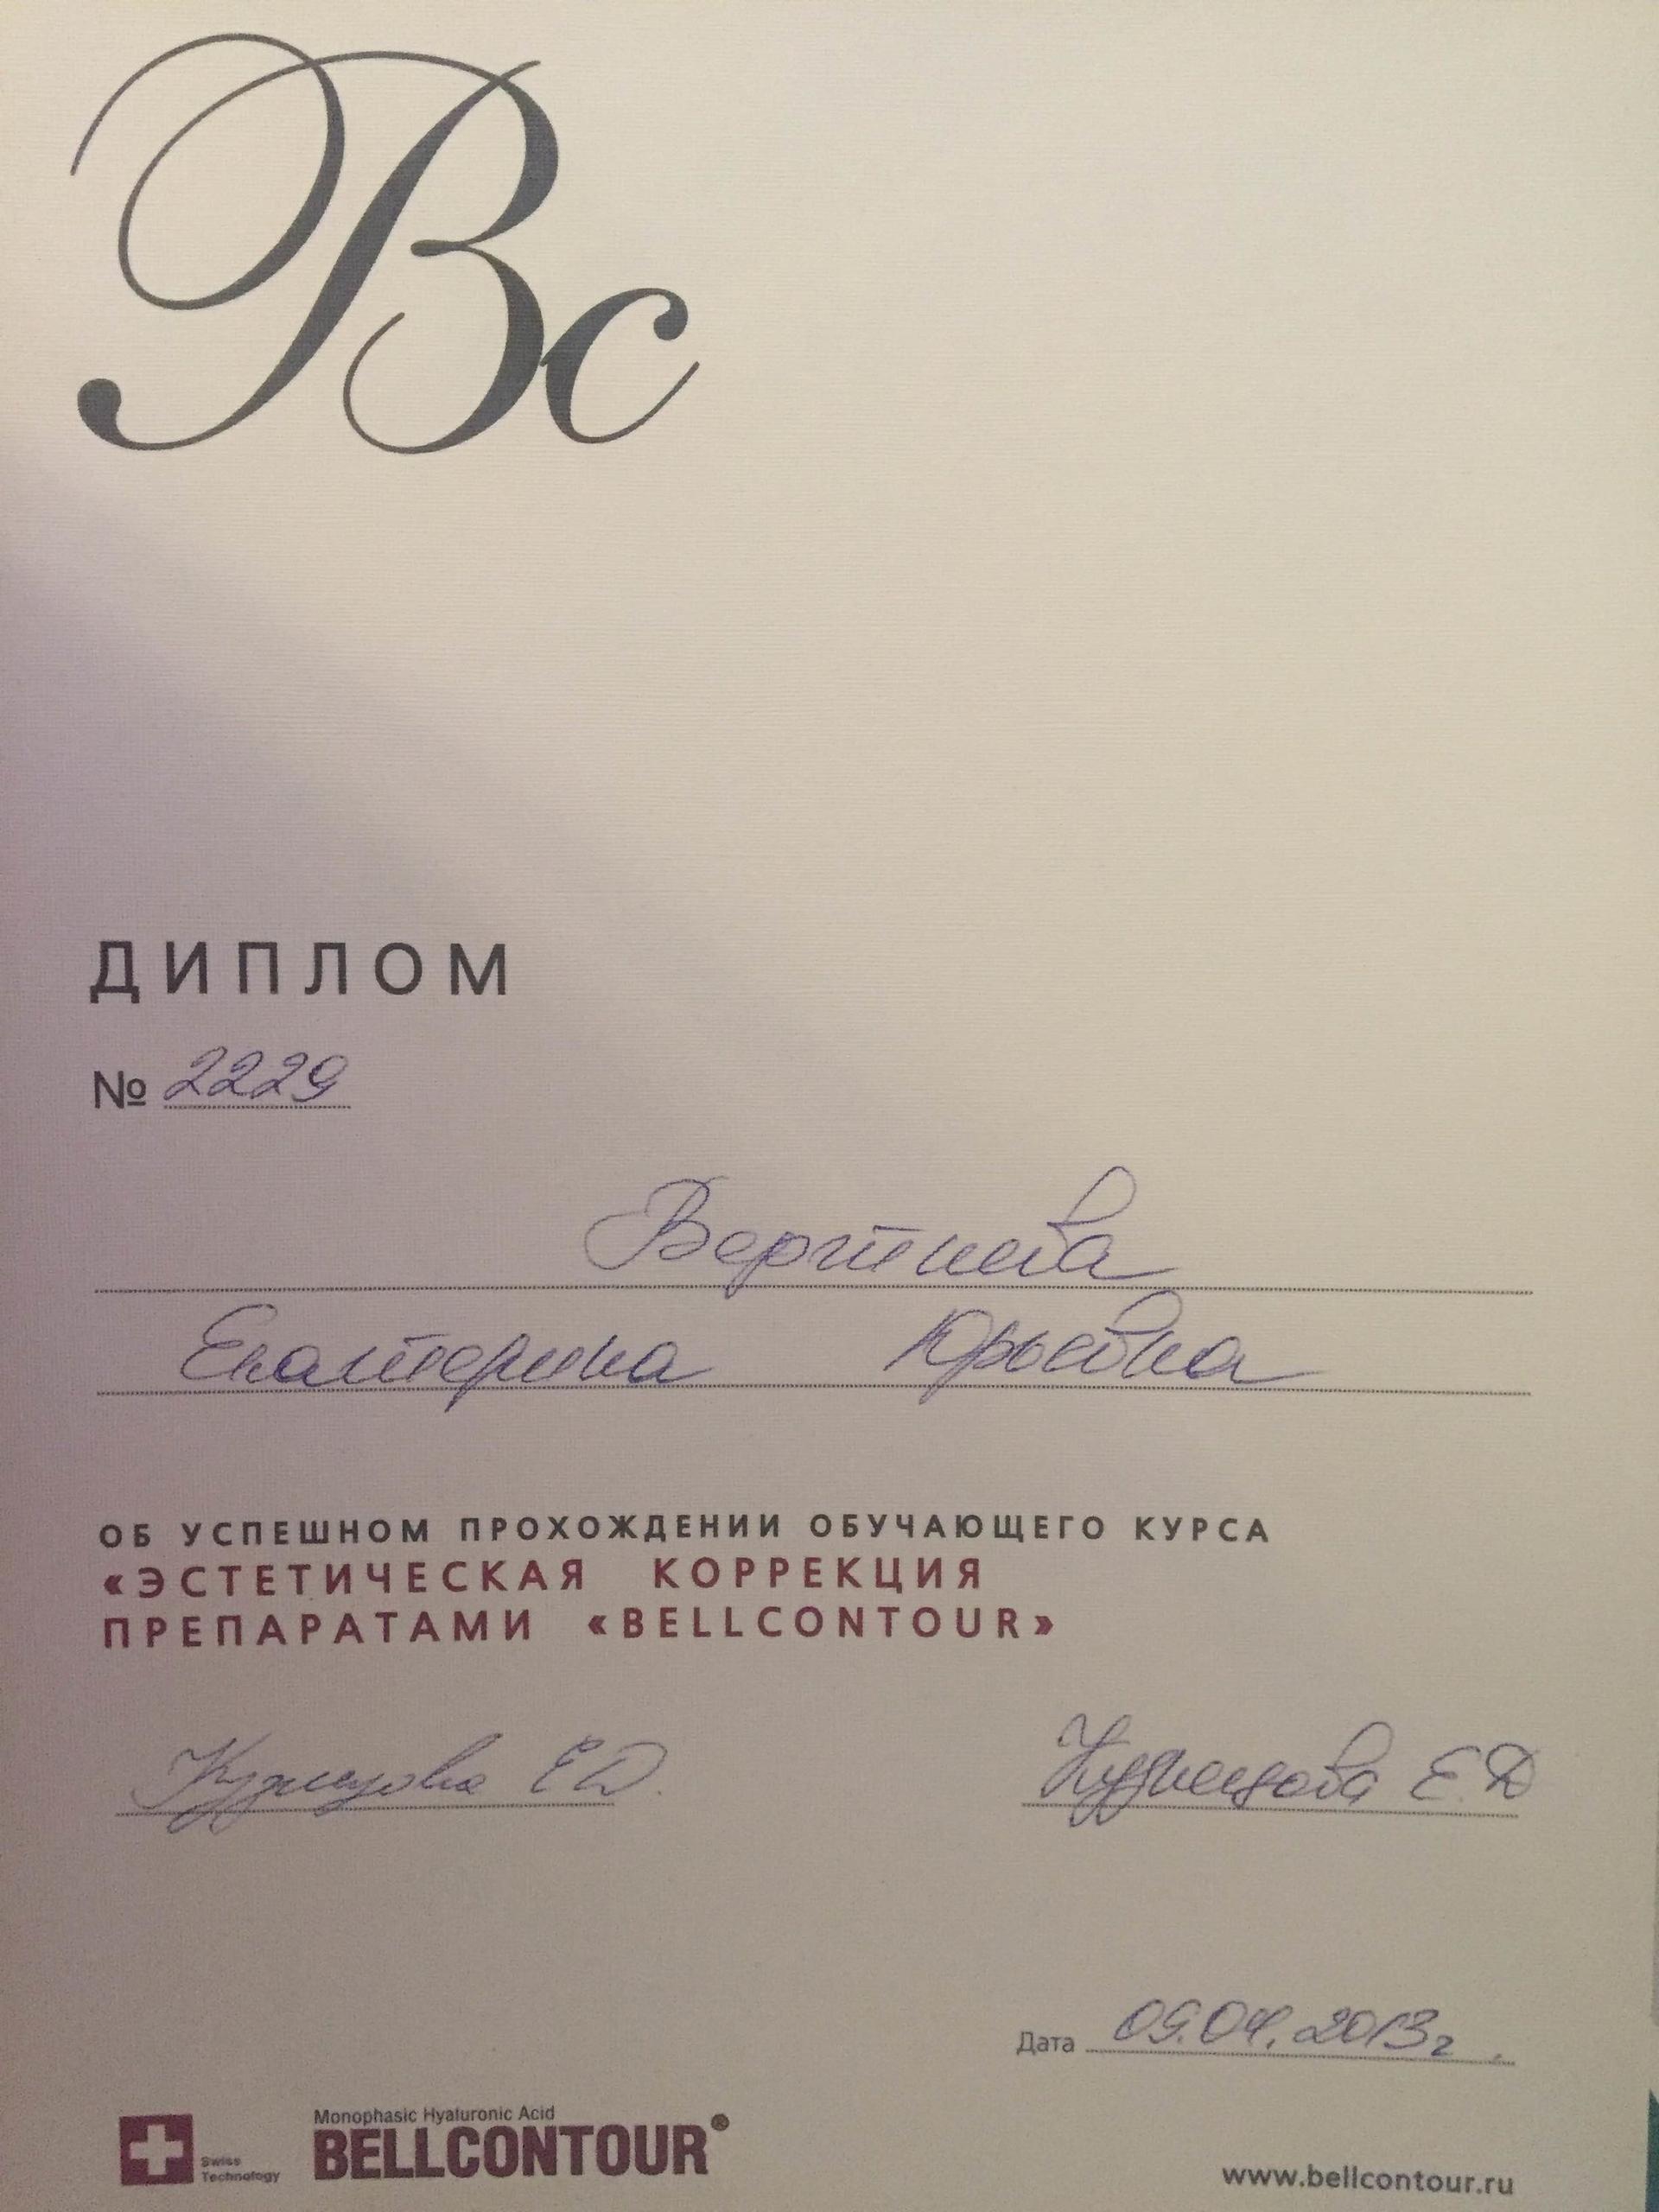 Bc
ДИПЛОМ
№ 2229
Вертиева
Екатерина Юрьевна
ОБ УСПЕШНОМ ПРОХОЖДЕНИИ ОБУЧАЮЩЕГО КУРСА
«ЭСТЕТИЧЕСКАЯ КОРРЕКЦИЯ
ПРЕПАРАТАМИ «BELLCONTOUR»
Кузнецова Е.Д. Кузнецова Е.Д
Дата 09.04.2013г.
Swiss
Technology
Monophasic Hyaluronic Acid
BELLCONTOUR®
www.bellcontour.ru